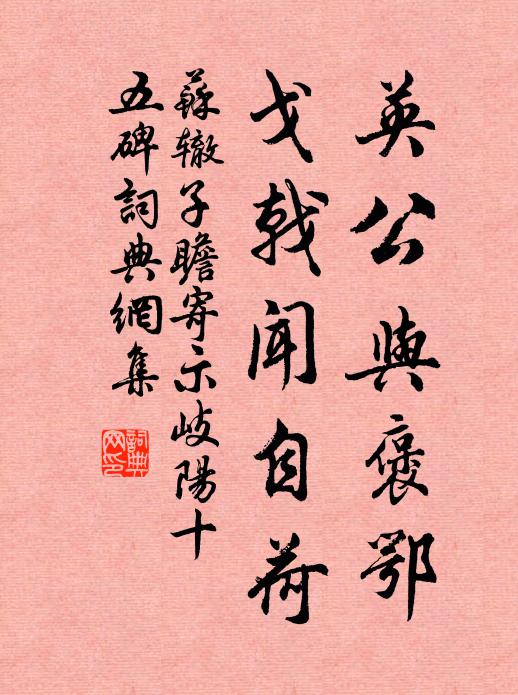 英公與褒鄂
戈戟聞自荷
蘇轍子瞻寄示岐陽十
五碑詞典網集
詞典網印